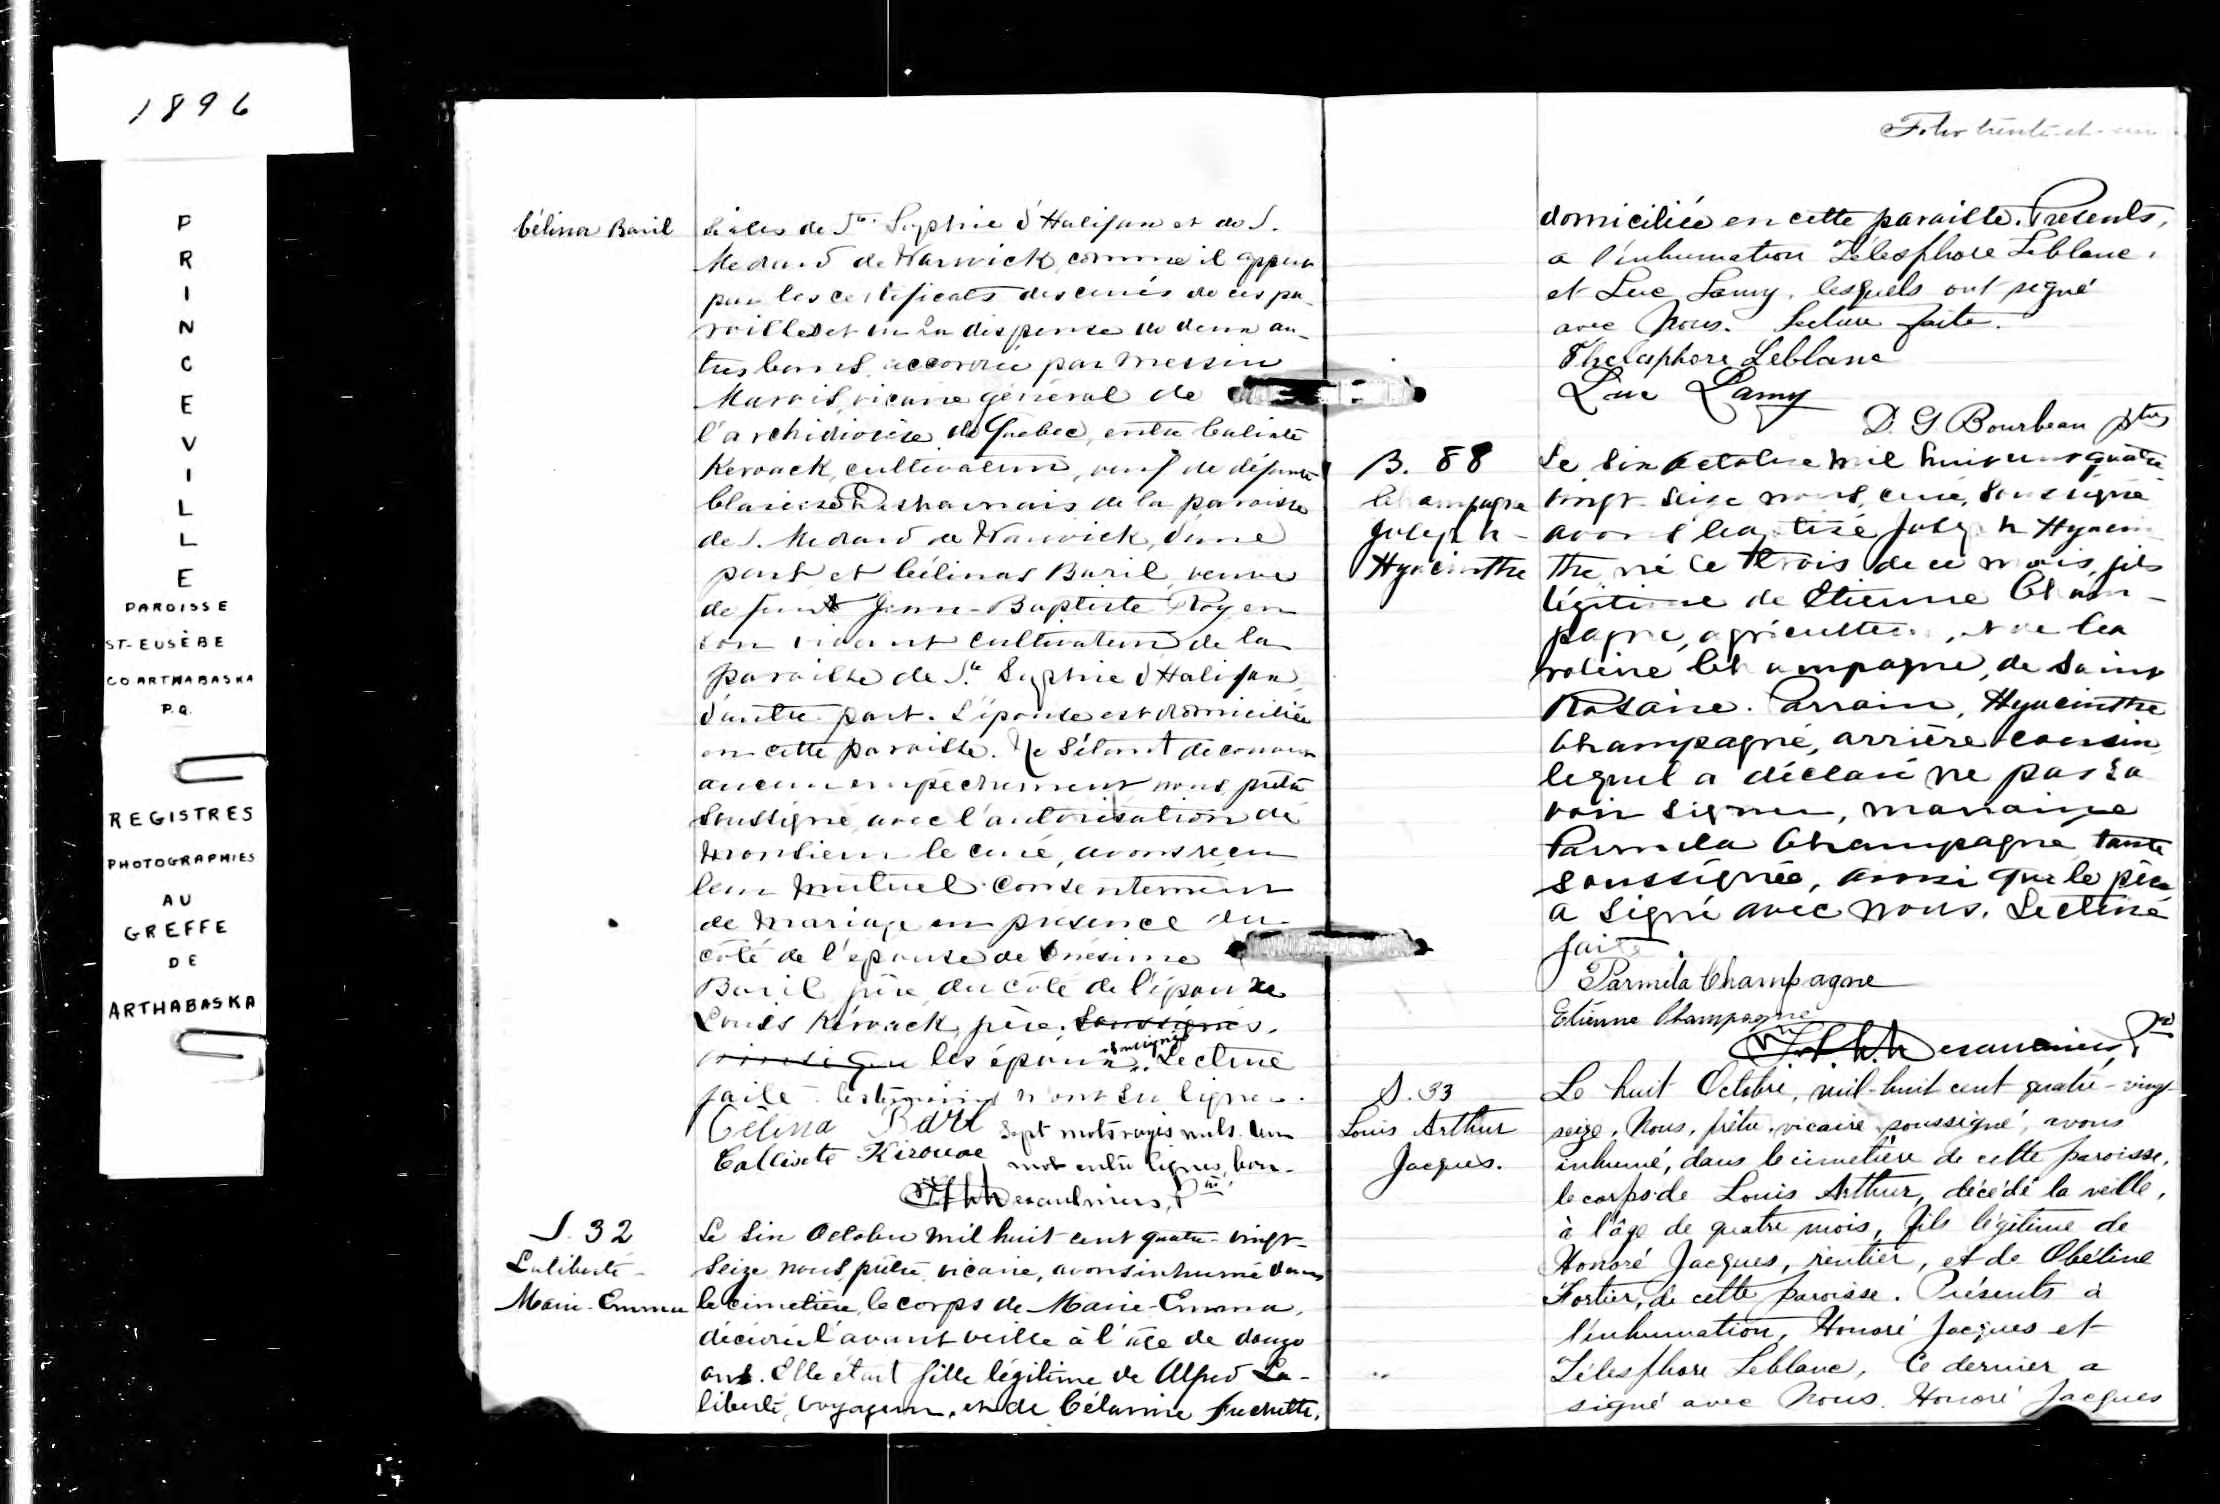 1896
PRINCEVILLE
PAROISSE
ST-EUSÈBE
CO ARTHABASKA
P.Q.
REGISTRES
PHOTOGRAPHIES
AU
GREFFE
DE
ARTHABASKA
Célina Baril
siales de Ste Sophie d'Halifax et de S.
Medard de Warwick, comme il appert
par les certificats des curés de ces pa-
roisses et vu la dispense de deux au-
tres bans accordée par Messire
Marois, vicaire général de
l'archidiocèse de Quebec, entre Calixte
Kerouack, cultivateur, veuf de défunte
Desharnais de la paroisse
de S. Medard de Warwick, d'une
part et Célinas Baril, veuve
de feu Jean-Baptiste Roy en
son vivant cultivateur de la
paroisse de Ste Sophie d'Halifax
d'autre part. L'épouse est domiciliée
en cette paroisse. Ne s'étant découvert
aucun empêchement nous, prêtre
soussigné avec l'autorisation de
Monsieur le curé, avons reçu
leur mutuel consentement
de mariage en présence du
côté de l'épouse de Onésime
Baril père, du côté de l'époux de
Louis Kérouack père. soussignés.
ainsi que les époux soussignés. Lecture
faite. les témoins n'ont su signer.
Célina Baril sept mots rayés nuls. Un
Callixte Kirouac mot entre lignes, bon.
Desaulniers, Ptre
S. 32
Laliberté -
Marie-Emma
Le six Octobre mil huit cent quatre-vingt-
seize nous prêtre vicaire, avons inhumé dans
le cimetière, le corps de Marie-Emma,
décédée l'avant veille à l'âge de douze
ans. Elle était fille légitime de Alfred La-
liberté, voyageur, et de Célanire Frechette,
Folio trente-et-un
domiciliée en cette paroisse. Présents,
a l'inhumation Télesphore Leblanc,
et Luc Lamy, lesquels ont signé
avec Nous. Lecture faite.
Thelesphore Leblanc
Luc Lamy
D. G Bourbeau ptre
B. 88
Champagne
Joseph-
Hyacinthe
Le six octobre mil huit cent quatre
vingt seize nous, curé, soussigné
avons baptisé Joseph Hyacin
the né le trois de ce mois, fils
légitime de Etienne Cham-
pagne, agriculteur, et de Ca
roline Champagne, de Saint
Rosaire. Parrain, Hyacinthe
Champagne, arrière cousin
lequel a déclaré ne pas sa
voir signer, marraine
Parmela Champagne tante
soussignée, ainsi que le père
a signé avec nous. Lecture
faite.
Parmela Champagne
Etienne Champagne
Desaulniers, Ptre
S. 33
Louis Arthur
Jacques.
Le huit Octobre, mil-huit cent quatre-vingt-
seize, Nous, prêtre vicaire soussigné, avons
inhumé, dans le cimetière de cette paroisse,
le corps de Louis Arthur, décédé la veille,
à l'âge de quatre mois, fils légitime de
Honoré Jacques, rentier, et de Obéline
Fortier, de cette paroisse. Présents à
l'inhumation, Honoré Jacques et
Télesphore Leblanc, Ce dernier a
signé avec Nous. Honoré Jacques